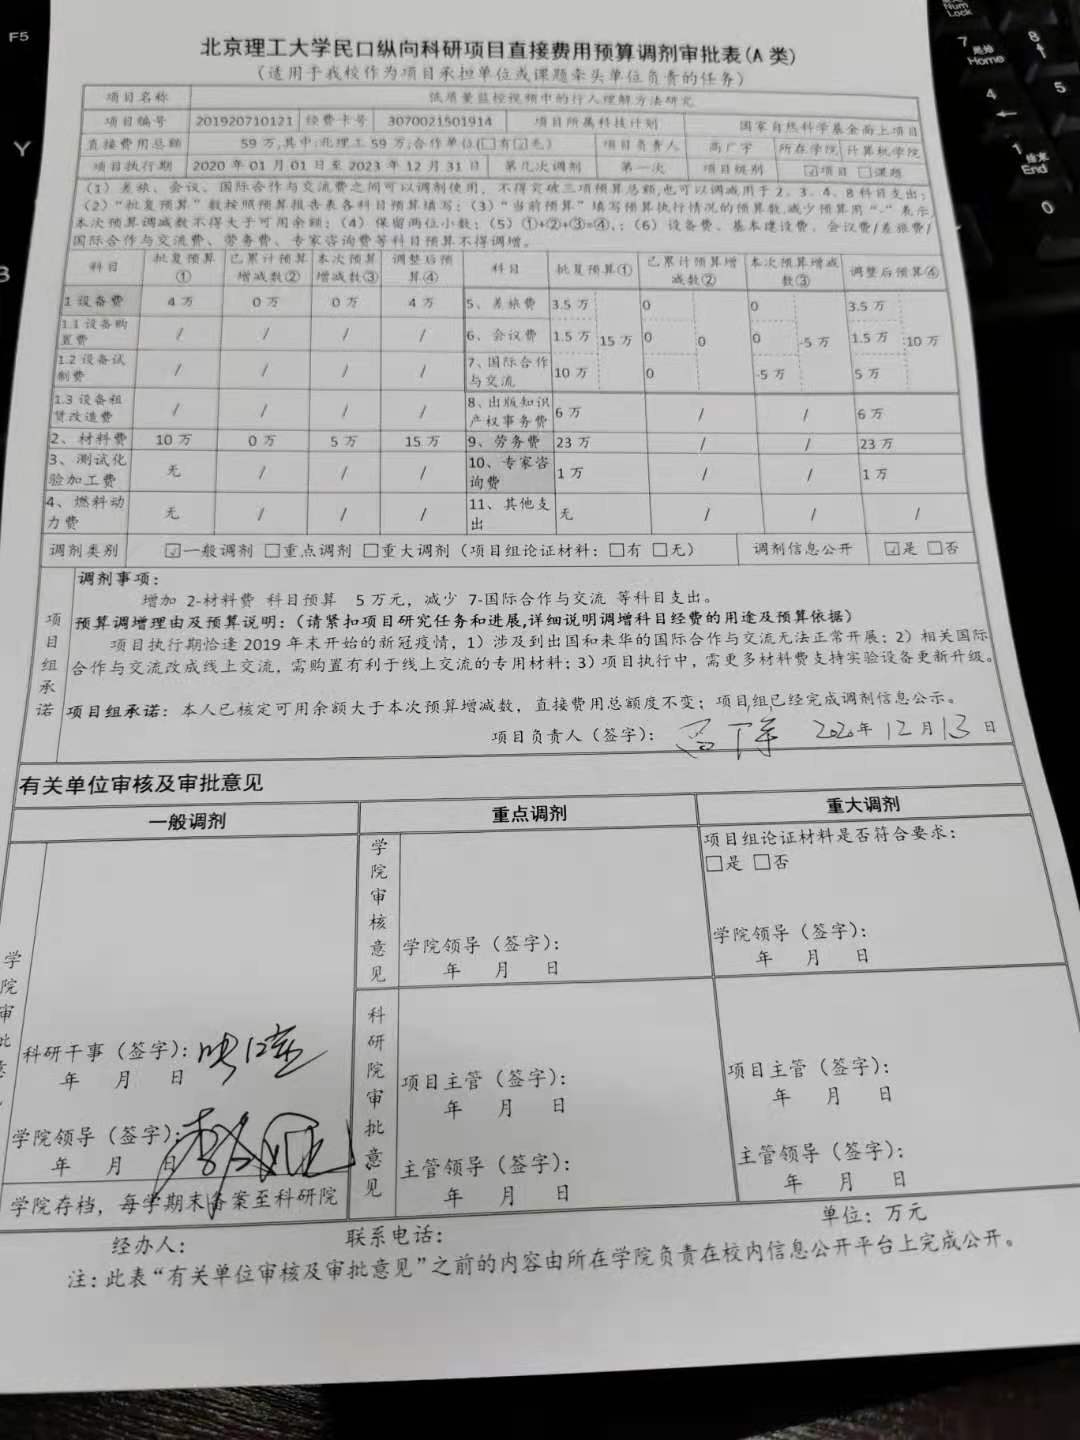 北京理工大学民口纵向科研项目直接费用预算调剂审批表(A 类)
（适用于我校作为项目承担单位或课题牵头单位负责的任务）
项目名称 低质量监控视频中的行人理解方法研究
项目编号 201920710121 经费卡号 3070021501914 项目所属科技计划 国家自然科学基金面上项目
直接费用总额 59 万,其中:北理工 59 万;合作单位(□有☑无) 项目负责人 高广宇 所在学院 计算机学院
项目执行期 2020 年 01 月 01 日至 2023 年 12 月 31 日 第几次调剂 第一次 项目级别 ☑项目 □课题
（1）差旅、会议、国际合作与交流费之间可以调剂使用，不得突破三项预算总额,也可以调减用于 2、3、4、8 科目支出；
（2）“批复预算”数按照预算报告表各科目预算填写；（3）“当前预算”填写预算执行情况的预算数,减少预算用“-”表示,
本次预算调减数不得大于可用余额；（4）保留两位小数；（5）①+②+③=④,；（6）设备费、基本建设费、会议费/差旅费/
国际合作与交流费、劳务费、专家咨询费等科目预算不得调增。
科目 批复预算① 已累计预算增减数② 本次预算增减数③ 调整后预算④ 科目 批复预算① 已累计预算增减数② 本次预算增减数③ 调整后预算④
1 设备费 4 万 0 万 0 万 4 万 5、差旅费 3.5 万 0 0 3.5 万
1.1 设备购置费 / / / / 6、会议费 1.5 万 15 万 0 0 0 -5 万 1.5 万 10 万
1.2 设备试制费 / / / / 7、国际合作与交流 10 万 0 -5 万 5 万
1.3 设备租赁改造费 / / / / 8、出版知识产权事务费 6 万 / / 6 万
2、材料费 10 万 0 万 5 万 15 万 9、劳务费 23 万 / / 23 万
3、测试化验加工费 无 / / / 10、专家咨询费 1 万 / / 1 万
4、燃料动力费 无 / / / 11、其他支出 无 / / /
调剂类别 ☑一般调剂 □重点调剂 □重大调剂（项目组论证材料：□有 □无） 调剂信息公开 ☑是 □否
项目组承诺
调剂事项：
增加 2-材料费 科目预算 5 万元，减少 7-国际合作与交流 等科目支出。
预算调增理由及预算说明：(请紧扣项目研究任务和进展,详细说明调增科目经费的用途及预算依据)
项目执行期恰逢 2019 年末开始的新冠疫情，1）涉及到出国和来华的国际合作与交流无法正常开展；2）相关国际
合作与交流改成线上交流，需购置有利于线上交流的专用材料；3）项目执行中，需更多材料费支持实验设备更新升级。
项目组承诺：本人已核定可用余额大于本次预算增减数，直接费用总额度不变；项目组已经完成调剂信息公示。
项目负责人（签字）： 2020年 12月 13 日
有关单位审核及审批意见
一般调剂 重点调剂 重大调剂
学院审批意见
科研干事（签字）：
年 月 日
学院领导（签字）：
年 月 日
学院存档，每学期末备案至科研院
学院审核意见
学院领导（签字）：
年 月 日
项目组论证材料是否符合要求：
□是 □否
学院领导（签字）：
年 月 日
科研院审批意见
项目主管（签字）：
年 月 日
主管领导（签字）：
年 月 日
项目主管（签字）：
年 月 日
主管领导（签字）：
年 月 日
经办人： 联系电话： 单位：万元
注：此表“有关单位审核及审批意见”之前的内容由所在学院负责在校内信息公开平台上完成公开。
F5
Y
B
Num Lock
7 起始 Home
8
4
5
1 结束 End
0